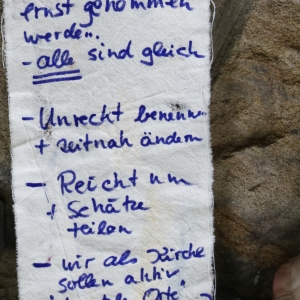 ernst genommen
werden.
- alle sind gleich
- Unrecht benennen
+ zeitnah ändern
- Reichtum
+ Schätze
teilen
- wir als Kirche
sollen aktiv
Orte